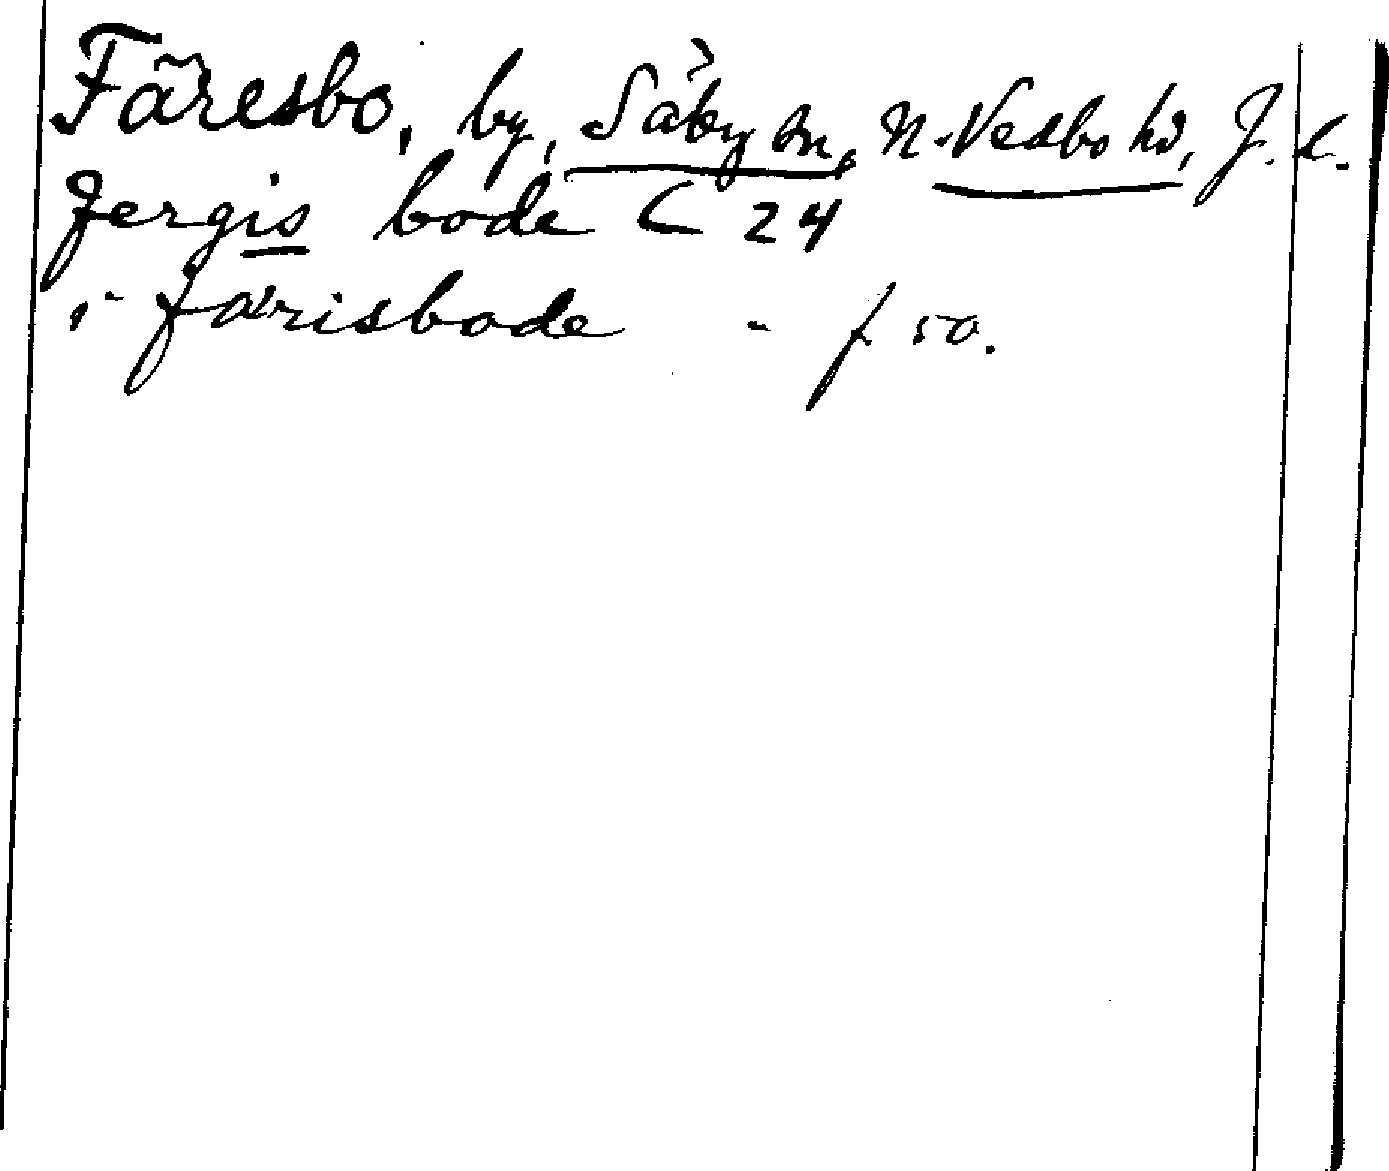 Färesbo, by, Säby sn, N. Vedbo hd, J. L.
fergis bode C 24
i færisbode - f 50.